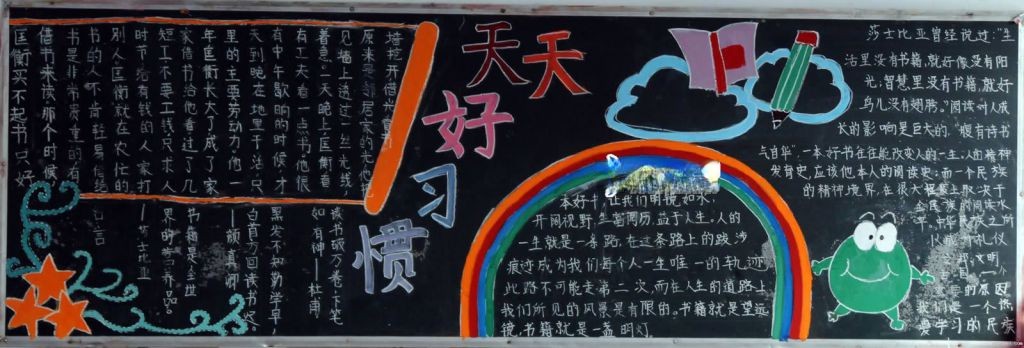 天天好习惯
匡衡买不起书,只好
借书来读.那个时候,
书是非常贵重的,有
书的人不肯轻易借给
别人.匡衡就在农忙的
时节,给有钱的人家打
短工,不要工钱只求人
家借书给他看.过了几
年匡衡长大了,成了家
里的主要劳动力.他一
天到晚在地里干活.只
有中午歇晌的时候,才
有工夫看一点书.他很
着急.一天晚上匡衡看
见墙上透过一丝光线,
原来是邻居家的光他把
读书破万卷,下笔
如有神——杜甫
黑发不知勤学早,
白首方回读书迟
——颜真卿
书籍是全世
界的营养品.
——莎士比亚
名言
本好书,让我们明悦如水,
开阔视野,丰富阅历,益于人生.人的
一生就是一条路,在这条路上的跋涉
痕迹成为我们每个人一生唯一的轨迹,
此路不可能走第二次,而在人生的道路上
我们所见的风景是有限的。书籍就是望远
镜,书籍就是一盏明灯
莎士比亚曾经说过:"生
活里没有书籍,就好像没有阳
光;智慧里没有书籍,就好
鸟儿没有翅膀。"阅读对人成
长的影响是巨大的,"腹有诗书
气自华",一本好书往往能改变人的一生,人的精神
发育史,应该他本人的阅读史;而一个民族
的精神境界,在很大程度上取决于
全民族的阅读水
平,中华民族之所
原因
我们是一个热
爱学习的民族